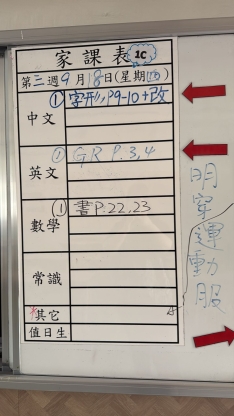 家課表 1C
第三週9月18日(星期四)
中文 ① 字形, P9-10+改
英文 ① G.R P.3,4
數學 ① 書P.22,23
常識
*其它
值日生
明穿運動服